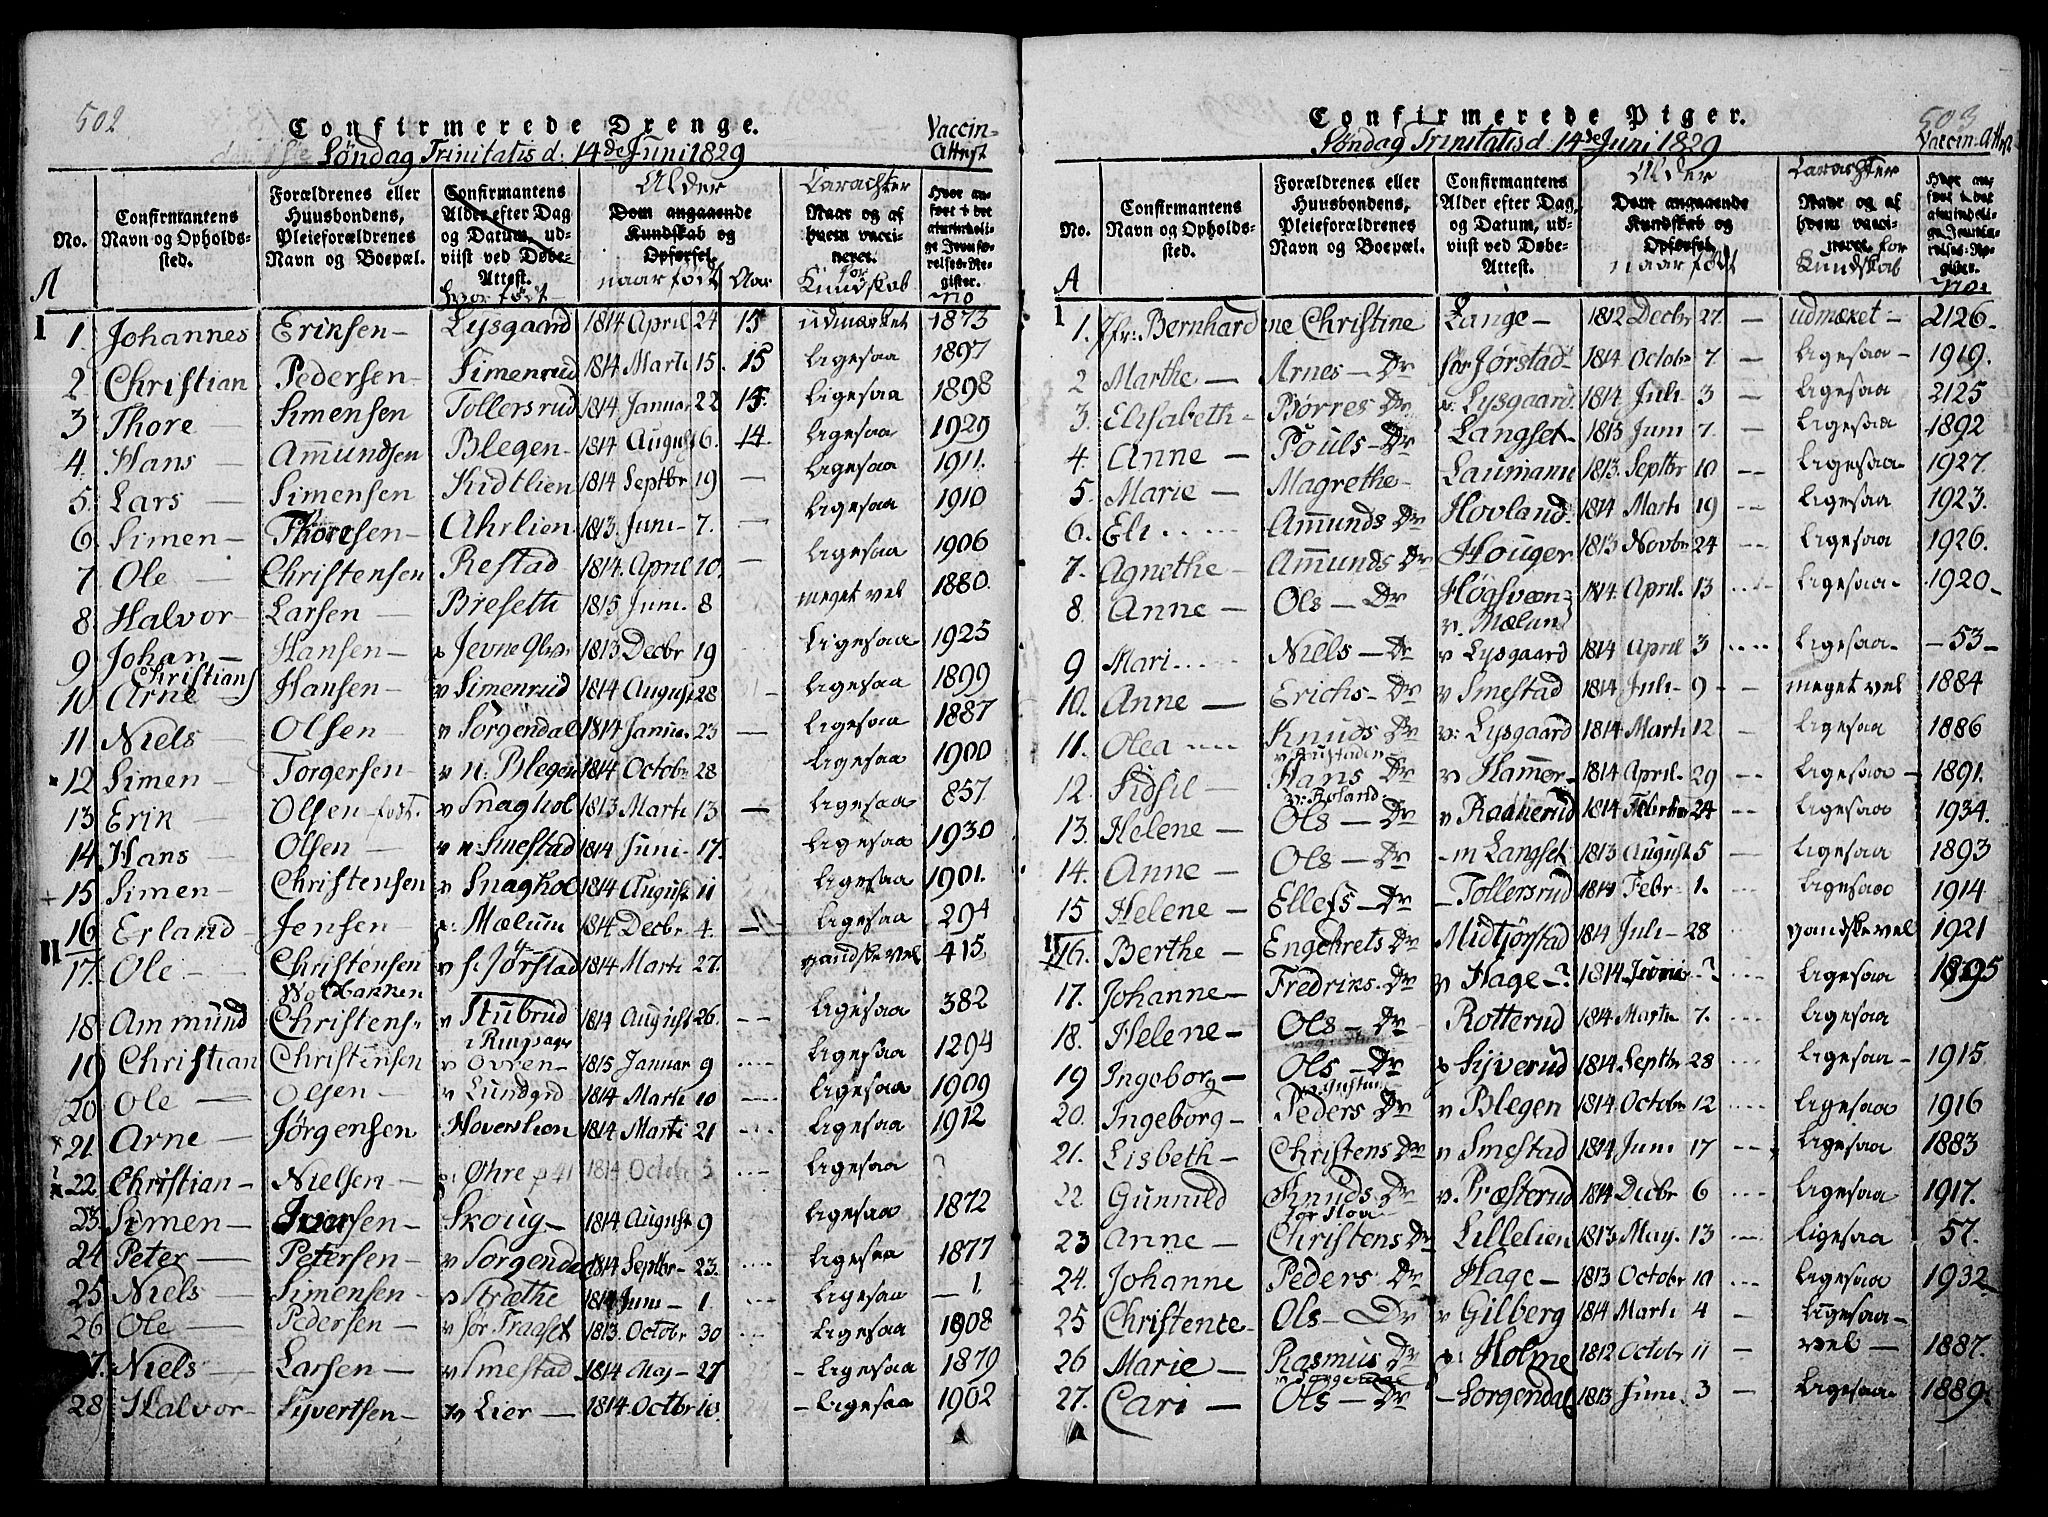 502
Confirmerede Drenge.
Søndag Trinitatis d: 14de Juni 1829
Vaccin-
Attest
No.
Confirmantens
Navn og Opholds-
sted.
Forældrenes eller
Huusbondens,
Pleieforældrenes
Navn og Boepæl.
Confirmantens
Alder efter Dag
og Datum, ud-
viist ved Døbe-
Attest.
hvor født
Alder
Dom angaaende
Kundskab og
Opførsel.
naar født Aar
Carachter
Naar og af
hvem vacci-
neret.
for
Kundskab
Hvor an-
ført i det
almindeli-
ge Jevnfø-
relses-Re-
gister.
No
A
I
1. Johannes Eriksen Lysgaard 1814 April 24 15 udmærket 1873
2 Christian Pedersen Simenrud 1814 Marti 15. 15 ligesaa 1897
3 Thore Simensen Tollersrud 1814 Januar 22 15. ligesaa 1898
4. Hans Amundsen Blegen 1814 August 6. 14. ligesaa 1929
5. Lars Simensen Kidtlien 1814 Septbr 19 ligesaa 1911.
6 Simen Thoresen Ahrlien 1813. Juni 7. ligesaa 1910
7 Ole Christensen Restad 1814. April 10. ligesaa 1906
8 Halvor Larsen Breseth 1815 Juni. 8 meget vel 1880.
9 Johan Christian Hansen Jevne 1813 Decbr 19 ligesaa 1925
10 Arne Hansen v Simenrud 1814 August 28 ligesaa 1899
11 Niels Olsen v Sorgendal 1814 Janua. 23 ligesaa 1887
12 Simen Torgersen v n: Blegen 1814 Octobr 28 ligesaa 1900
13 Erik Olsen v Snaghol 1813 Marti 13 ligesaa 857
14 Hans Olsen v n: Smestad 1814 Juni 17. ligesaa 1930
15 Simen Christensen v Snaghol 1814 August 11 ligesaa 1901.
16 Erland Jensen v: Mælum 1814 Decbr 4. ligesaa 294
II
17. Ole Christensen v s. Jørstad 1814 Marti 27. gandske vel 415
18 Ammund Christens: v Stubrud 1814 August 26. ligesaa 382
i Ringsager
19 Christian Christensen v Ovren 1815 Januar 9 ligesaa 1294
20 Ole Olsen v Lundgrd 1814 Marti 10 ligesaa 1909
21 Arne Jørgensen Hoverslien 1814 Marti 21 ligesaa 1912
22 Christian Nielsen Øhre p 41 1814 Octobr 5 ligesaa
23 Simen Iversen Skoug 1814 August 9 ligesaa 1872
24 Peter Petersen v Sorgendal 1814 Septbr 23. ligesaa 1877
25 Niels Simensen v Stræthe 1814 Juni 1. ligesaa 1.
26 Ole Pedersen v Sør Traaset 1813. Octobr 30 ligesaa 1908
27. Niels Larsen v Smestad 1814 Maj 27 ligesaa 1879
28 Halvor Syvertsen v Lier 1814 Octbr 10. ligesaa 1902
503
Confirmerede Piger.
Søndag Trinitatis d 14de Juni 1829
Vaccin-Attst
No.
Confirmantens
Navn og Opholds-
sted.
Forældrenes eller
Huusbondens,
Pleieforældrenes
Navn og Boepæl.
Confirmantens
Alder efter Dag
og Datum, ud-
viist ved Døbe-
Attest.
Alder
Dom angaaende
Kundskab og
Opførsel.
naar født
Carachter
Naar og af
hvem vacci-
neret. for
Kundskab
Hvor an-
ført i det
almindeli-
ge Jevnfø-
relses-Re-
gister.
No:
A
1
1. Jfr: Bernhardine Christine Lange 1812 Decbr 27. udmæket 2126.
2 Marthe Arnes Dr Sør Jørstad 1814 Octobr 7 ligesaa 1919.
3. Elisabeth Børres Dr v. Lysgaard 1814 Juli 3 ligesaa 2125
4. Anne Pouls Dr Langset 1813 Juni 7. ligesaa 1892
5. Marie Magrethe Laumann 1813. Septbr 10 ligesaa 1927.
6. Eli Amunds Dr Hovland 1814 Marti 19 ligesaa 1923.
7. Agnethe Amunds Dr Houger 1813 Novbr 24 ligesaa 1926.
8 Anne Ols Dr Høgsveen 1814. April. 13 ligesaa 1920
v. Mælum
9 Mari Niels Dr v Lysgaard 1814 April 3 ligesaa 53
10. Anne Erichs Dr v Smestad 1814 Juli 9 meget vel 1884
11. Olea Knuds Dr v: Lysgaard 1814 Marti 12 ligesaa 1886
12. Sidsil Hans Dr v Hammer 1814 April 29 ligesaa 1891.
13. Helene Ols Dr v Raaberud 1814 Februar 24 ligesaa 1934.
14. Anne Ols Dr m Langset 1813 August 5 ligesaa 1893
15 Helene Ellefs Dr Tollersrud 1814 Febr 1. ligesaa 1914
II
16. Berthe Engebrets Dr Midtjørstad 1814 Juli 28 gandske vel 1921
17. Johanne Fredriks Dr v Hage ? 1814 Juni ? ligesaa 1895
18. Helene Ols Dr Rotterud 1814 Marti 7. ligesaa
19 Ingeborg Ols Dr Syverud 1814 Septbr 28 ligesaa 1915.
20. Ingeborg Peders Dr v Blegen 1814. Octobr 12 ligesaa 1916
21. Lisbeth Christens Dr v Smestad 1814 Juni 17 ligesaa 1883
22 Gunnild Knuds Dr v. Præsterud 1814 Decbr 6 ligesaa 1917.
23 Anne Christens Dr Lillelien 1813 May. 13 ligesaa 57.
24. Johanne Peders Dr Hage 1813 Octobr 10 ligesaa 1932
25 Christence Ols Dr v Gilberg 1814 Marti 4 ligesaa
26 Marie Rasmus Dr v: Holme 1812 Octobr 11 vel 1887.
27. Cari Ols Dr Sorgendal 1813 Juni 3 ligesaa 1889.